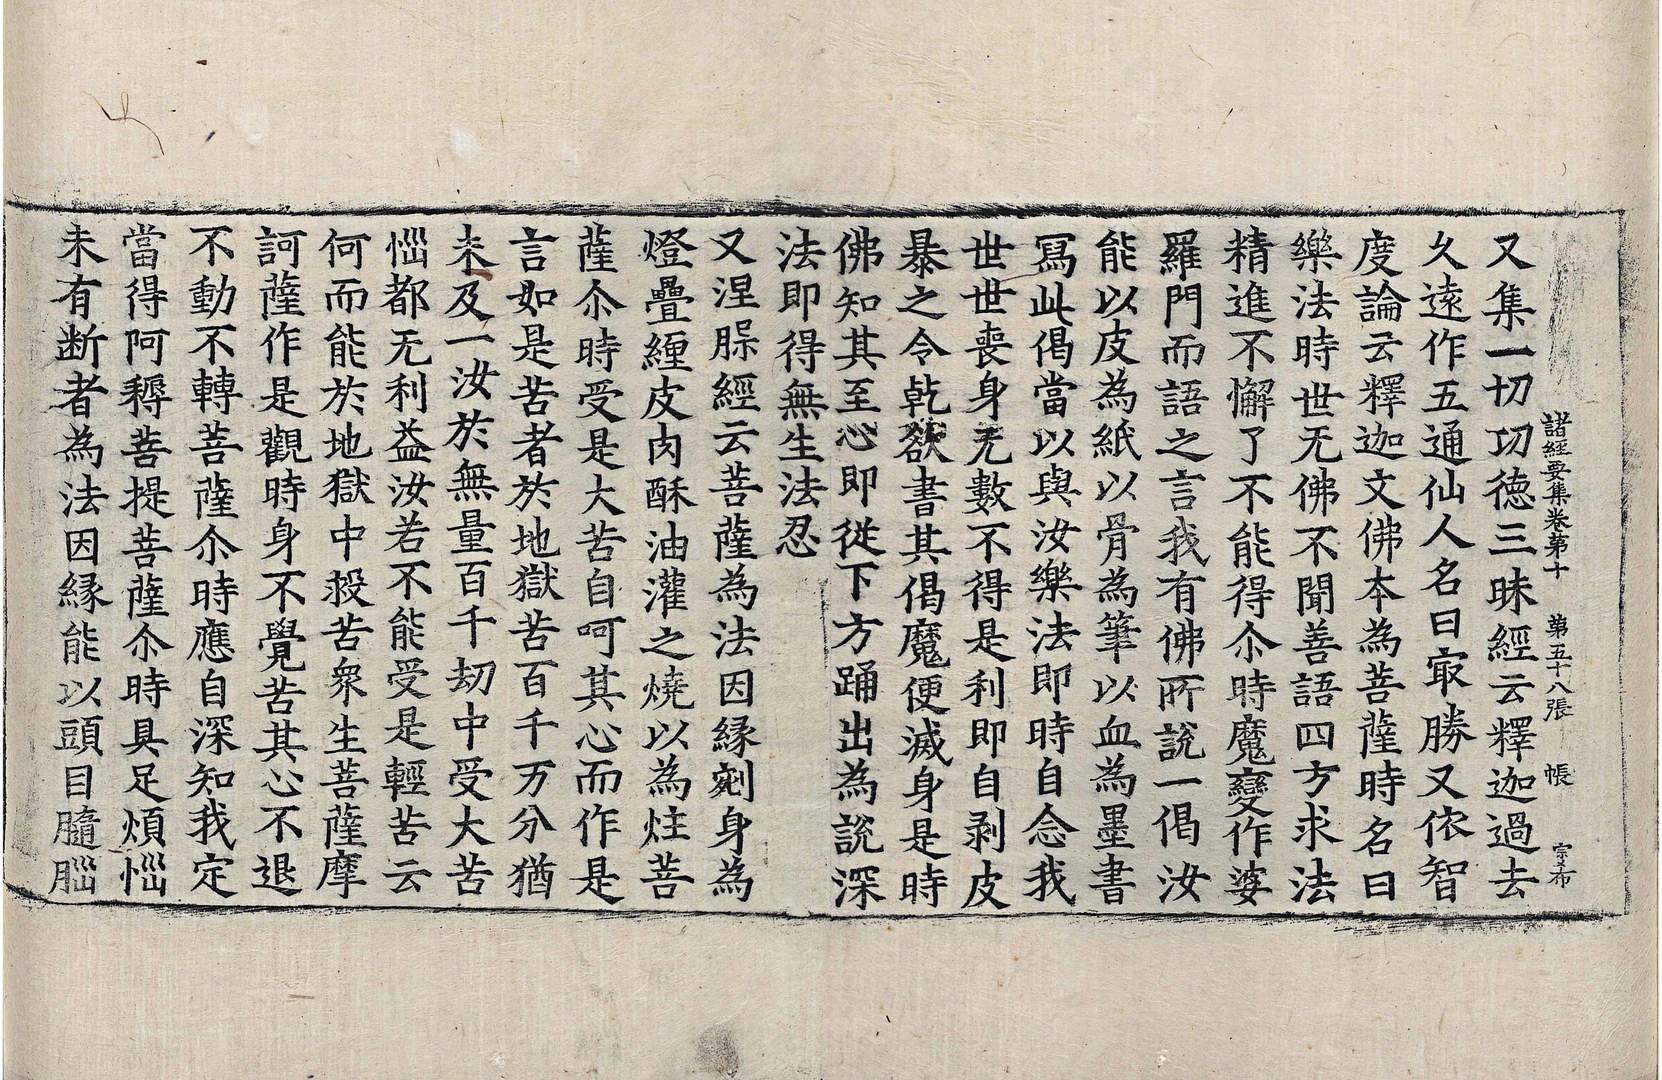 諸經要集卷第十 第五十八張 帳 宗布
又集一切功德三昧經云釋迦過去
久遠作五通仙人名曰㝡勝又依智
度論云釋迦文佛本為菩薩時名曰
樂法時世无佛不聞善語四方求法
精進不懈了不能得尒時魔變作婆
羅門而語之言我有佛所說一偈汝
能以皮為紙以骨為筆以血為墨書
寫此偈當以與汝樂法即時自念我
世世喪身无數不得是利即自剥皮
暴之令乾欲書其偈魔便滅身是時
佛知其至心即從下方踊出為說深
法即得無生法忍
又涅槃經云菩薩為法因緣剜身為
燈疊纏皮肉酥油灌之燒以為炷菩
薩尒時受是大苦自呵其心而作是
言如是苦者於地獄苦百千万分猶
未及一汝於無量百千劫中受大苦
惱都无利益汝若不能受是輕苦云
何而能於地獄中救苦衆生菩薩摩
訶薩作是觀時身不覺苦其心不退
不動不轉菩薩尒時應自深知我定
當得阿耨菩提菩薩尒時具足煩惱
未有断者為法因緣能以頭目髓腦